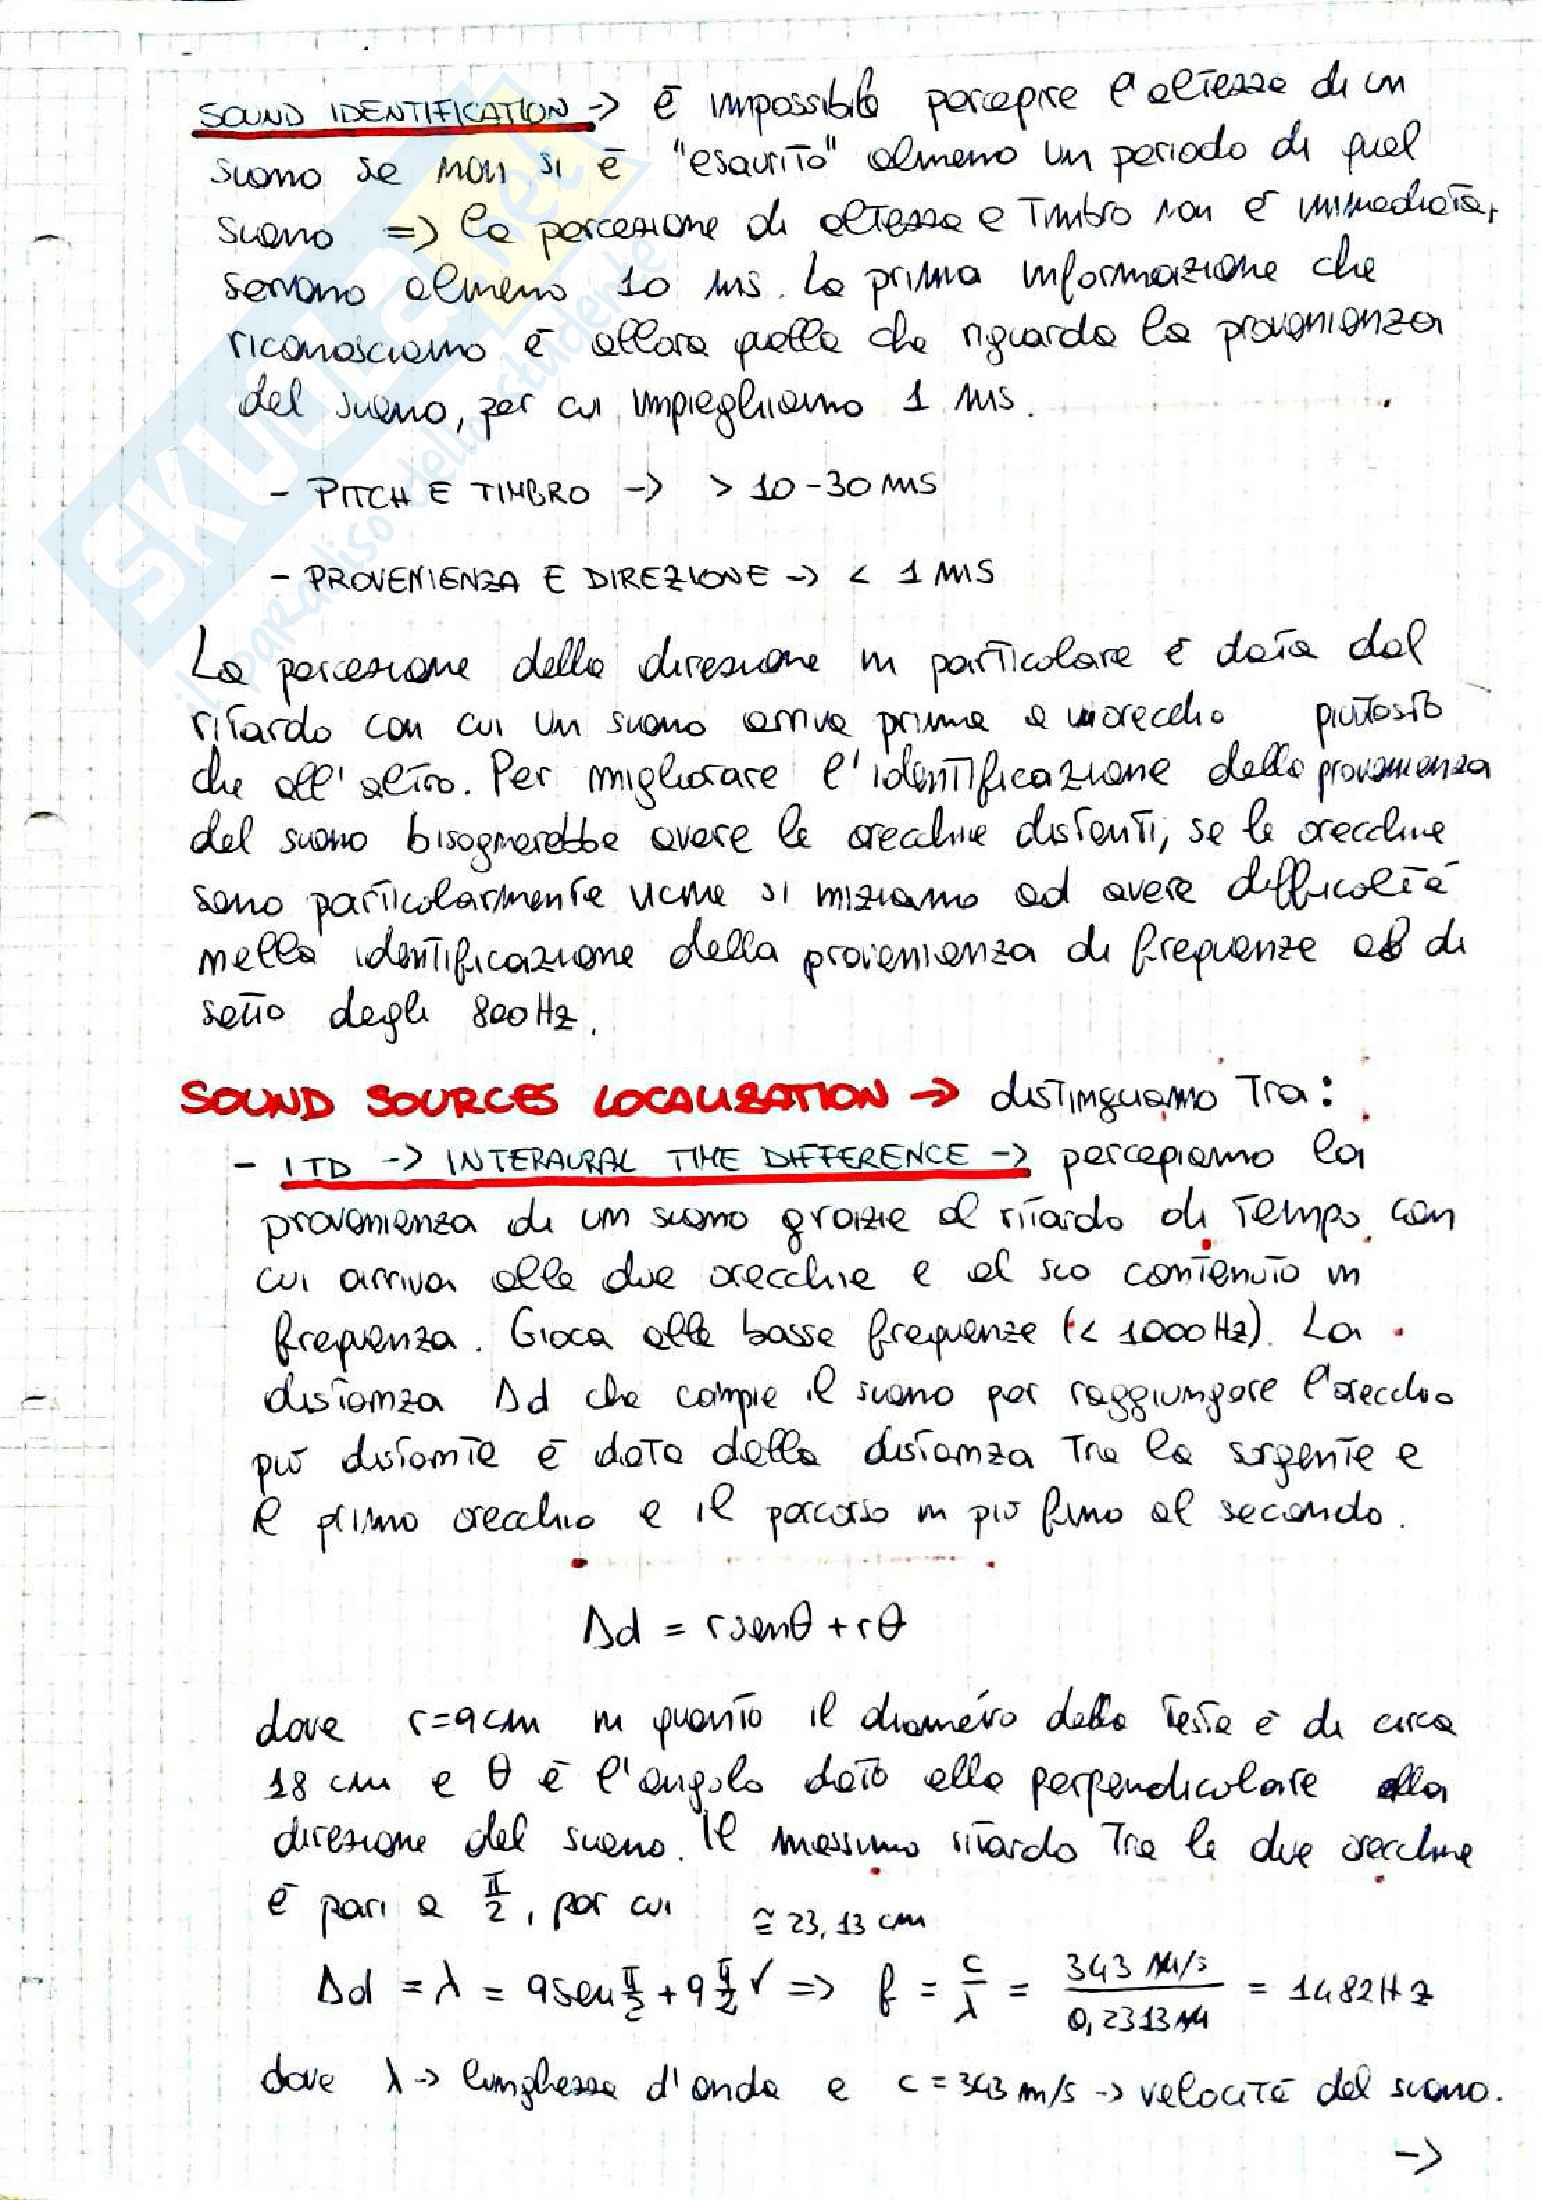 SOUND IDENTIFICATION -> è impossibile percepire l'altezza di un
suono se non si è "esaurito" almeno un periodo di quel
suono => la percezione di altezza e timbro non è immediata,
servono almeno 10 ms. La prima informazione che
riconosciamo è allora quella che riguarda la provenienza
del suono, per cui impieghiamo 1 ms.
- PITCH E TIMBRO -> > 10-30 ms
- PROVENIENZA E DIREZIONE -> < 1 ms
La percezione della direzione in particolare è data dal
ritardo con cui un suono arriva prima a un orecchio piuttosto
che all'altro. Per migliorare l'identificazione della provenienza
del suono bisognerebbe avere le orecchie distanti, se le orecchie
sono particolarmente vicine si iniziano ad avere difficoltà
nella identificazione della provenienza di frequenze al di
sotto degli 800 Hz.
SOUND SOURCES LOCALIZATION -> distinguiamo tra:
- ITD -> INTERAURAL TIME DIFFERENCE -> percepiamo la
provenienza di un suono grazie al ritardo di tempo con
cui arriva alle due orecchie e al suo contenuto in
frequenza. Gioca alle basse frequenze (< 1000 Hz). La
distanza Δd che compie il suono per raggiungere l'orecchio
più distante è data dalla distanza tra la sorgente e
il primo orecchio e il percorso in più fino al secondo.
Δd = r senθ + rθ
dove r=9cm in quanto il diametro della testa è di circa
18 cm e θ è l'angolo dato alla perpendicolare alla
direzione del suono. Il massimo ritardo tra le due orecchie
è pari a π/2, per cui ≅ 23,13 cm
Δd = λ = 9 sen π/2 + 9 π/2 √ => f = c/λ = 343 m/s / 0,2313 m = 1482 Hz
dove λ -> lunghezza d'onda e c = 343 m/s -> velocità del suono.
->
SKUOLA.net
il paradiso dello studente